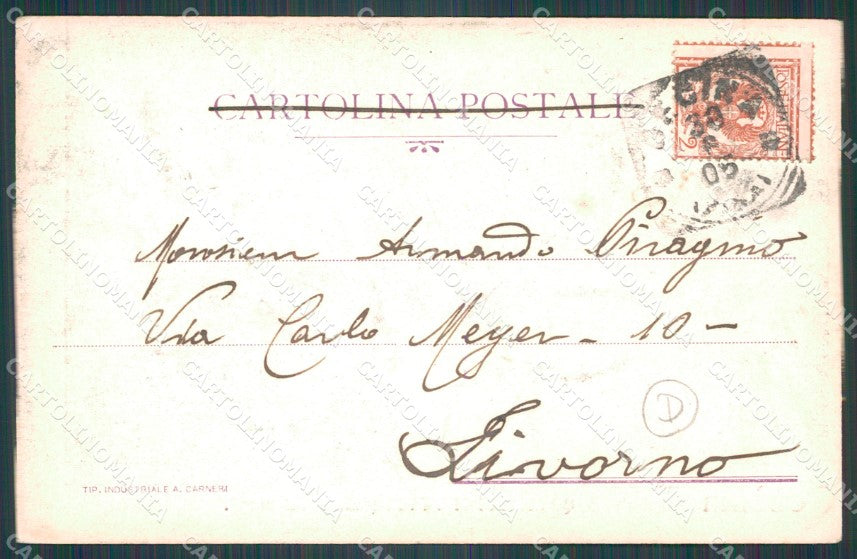 CARTOLINA POSTALE
CINA
30
05
Monsieur Armando Piragino
Via Carlo Meyer - 10 -
D
Livorno
TIP. INDUSTRIALE A. CARNERI
CARTOLINOMANIA